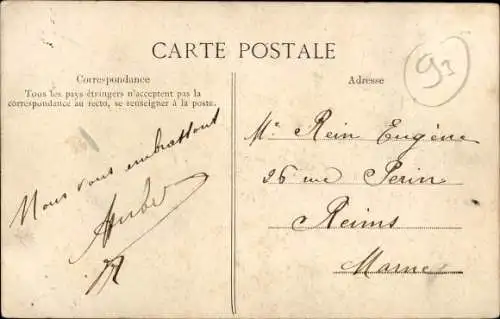 CARTE POSTALE
Correspondance
Tous les pays étrangers n'acceptent pas la
correspondance au recto, se renseigner à la poste.
Nous vous embrassons
Adresse
93
Mr Rein Eugène
26 rue Perin
Reims
Marne